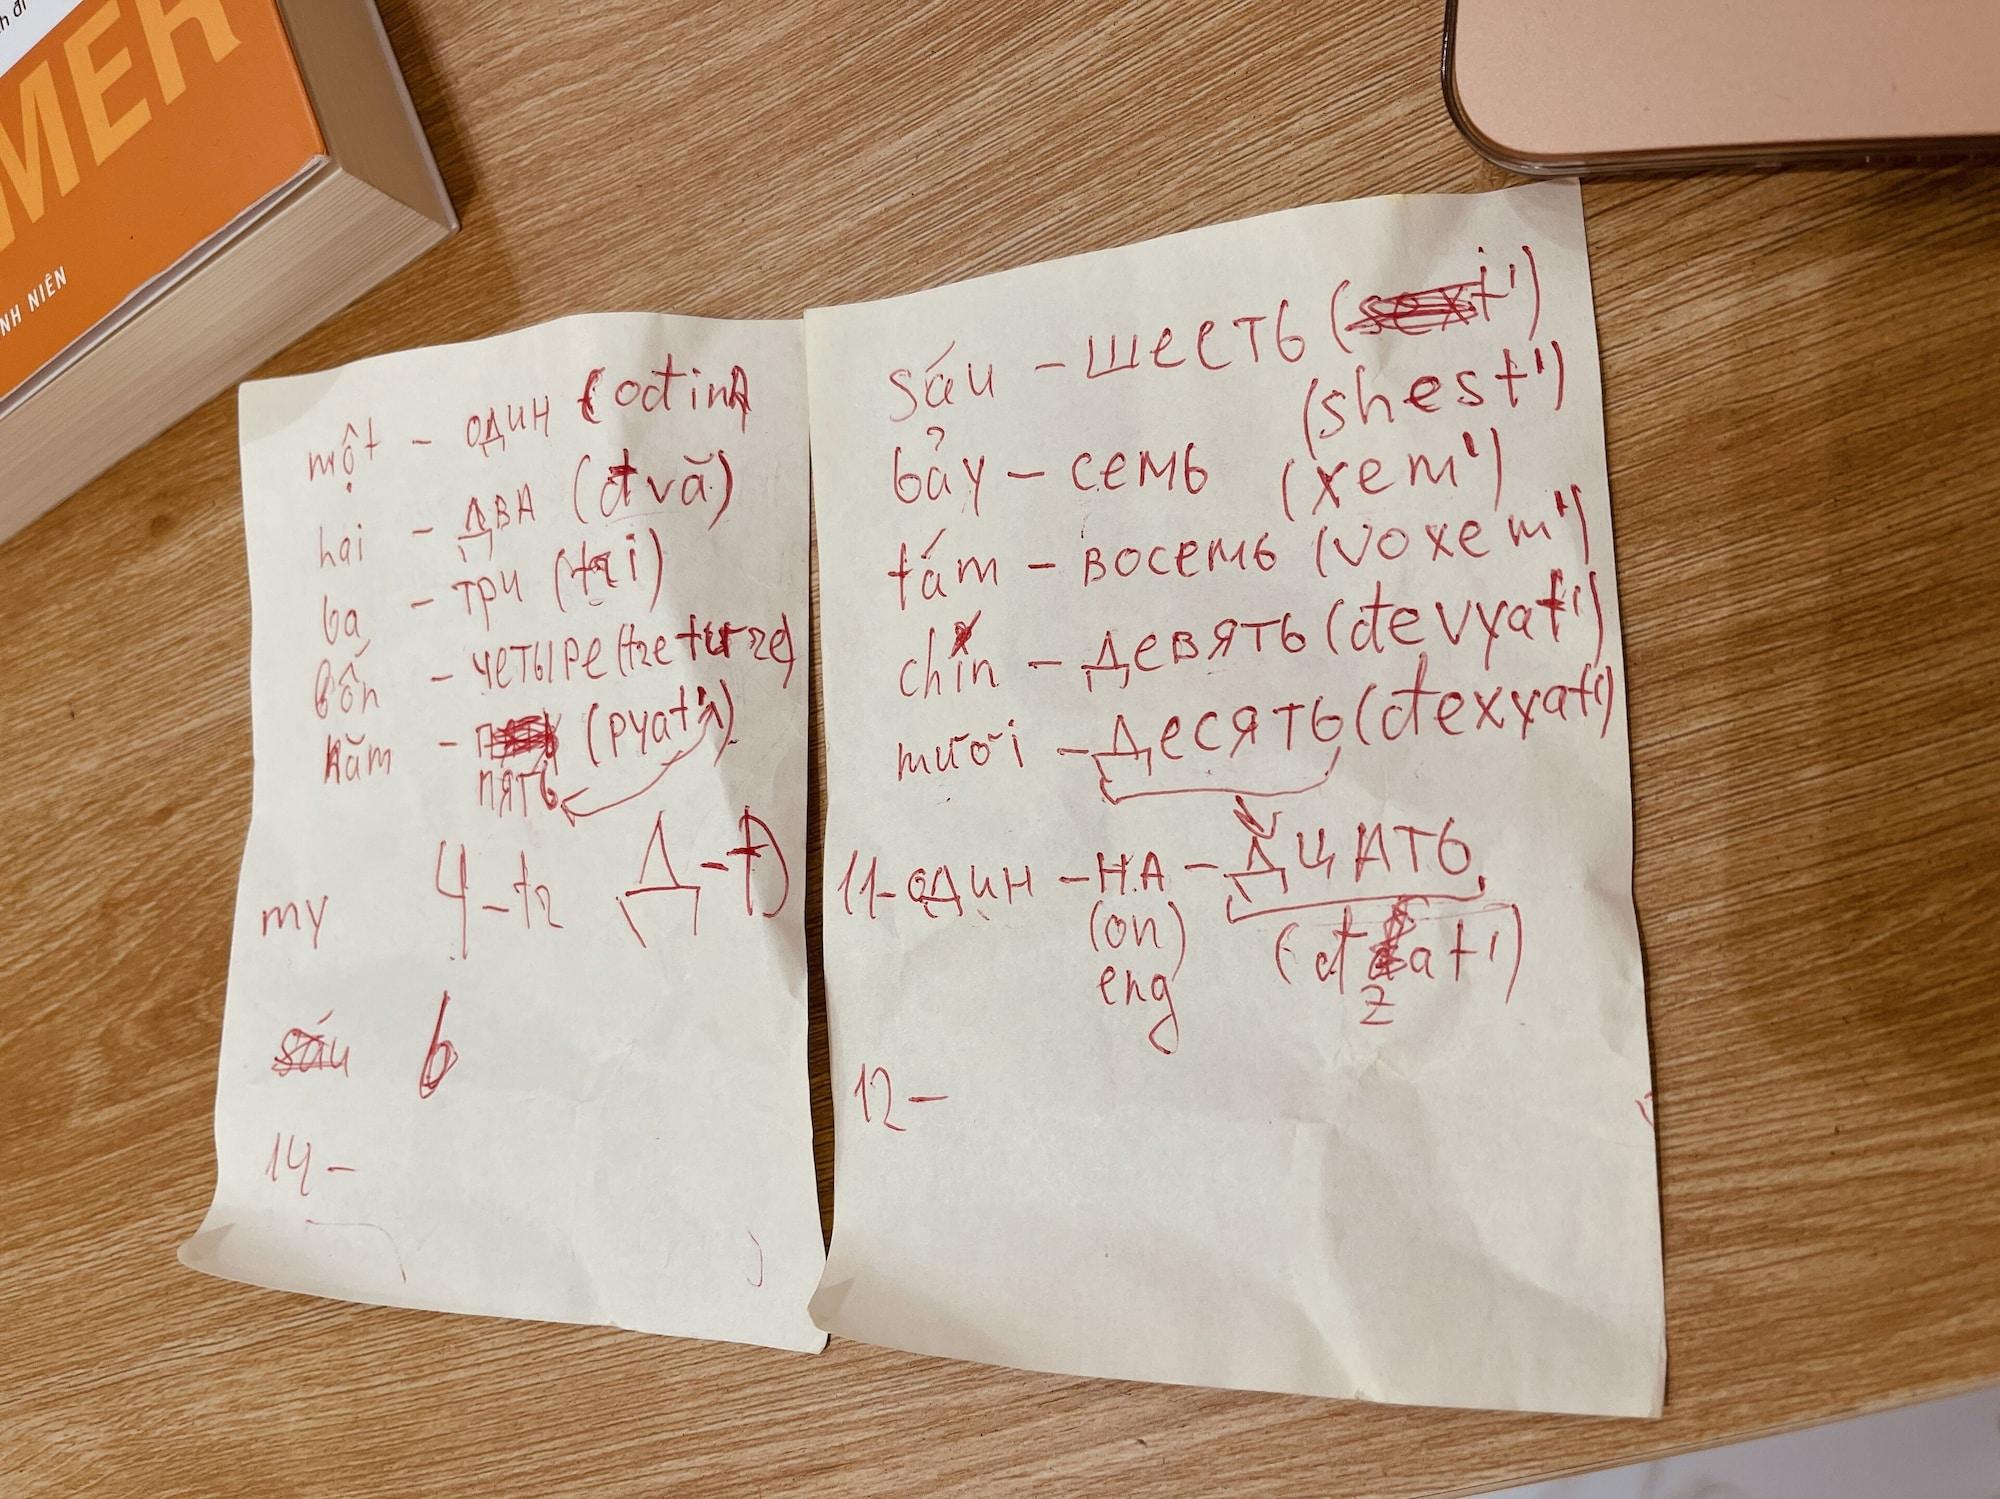 MER
NH NIÊN
một - один (ođin)
hai - два (đvă)
ba - три (tri)
bốn - четыре
năm - (pyat')
пять
my ч - tr Д - đ
sáu 6
14 -
sáu - шесть (sext')
(shest')
bảy - семь (xem')
tám - восемь (voxem')
chín - девять (đevyat')
mười - десять (đexyat')
11 - один - на - дцать
(on) (đ at')
eng z
12 -